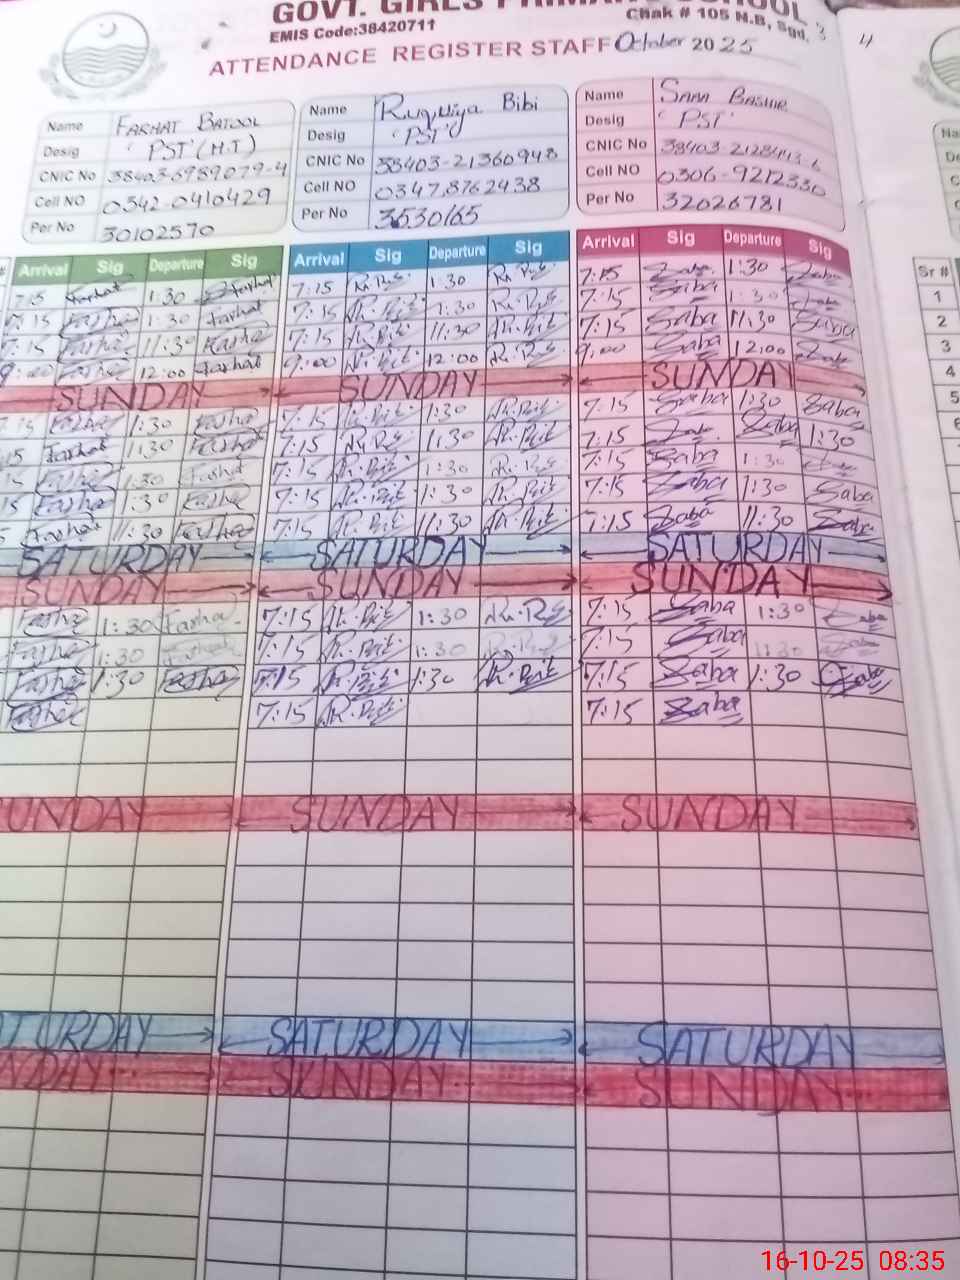 GOVT. GIRLS PRIMARY SCHOOL
EMIS Code:38420711 Chak # 105 N.B, Sgd. 3 4
ATTENDANCE REGISTER STAFF October 2025
Name FARHAT BATOOL Name Ruqyiya Bibi Name SABA BASHIR
Desig PST (H.T) Desig 'PST' Desig 'PST'
CNIC No 38403-6989079-4 CNIC No 38403-21360948 CNIC No 38403-
Cell NO 0342-0410429 Cell NO 0347.8762438 Cell NO 0306-9212330
Per No 30102570 Per No 3530165 Per No 32026781
# Arrival Sig Departure Sig Arrival Sig Departure Sig Arrival Sig Departure Sig Sr #
7:15 Farhat 1:30 Farhat 7:15 1:30 7:15 Saba 1:30 Saba 1
7:15 Farhat 1:30 Farhat 7:15 1:30 7:15 Saba 1:30 Saba 2
7:15 Farhat 11:30 Farhat 7:15 11:30 7:15 Saba 11:30 Saba 3
9:00 Farhat 12:00 Farhat 9:00 12:00 9:00 Saba 12:00 Saba 4
SUNDAY SUNDAY SUNDAY 5
7:15 Farhat 1:30 Farhat 7:15 1:30 7:15 Saba 1:30 Saba 6
15 Farhat 1:30 Farhat 7:15 1:30 7:15 Saba Saba 1:30
Farhat 1:30 Farhat 7:15 1:30 7:15 Saba 1:30 Saba
Farhat 1:30 Farhat 7:15 1:30 7:15 Saba 1:30 Saba
Farhat 11:30 Farhat 7:15 11:30 7:15 Saba 11:30 Saba
SATURDAY SATURDAY SATURDAY
SUNDAY SUNDAY SUNDAY
Farhat 1:30 Farhat 7:15 1:30 7:15 Saba 1:30 Saba
Farhat 1:30 Farhat 7:15 1:30 7:15 Saba 1:30 Saba
Farhat 1:30 Farhat 7:15 1:30 7:15 Saba 1:30 Saba
Farhat 7:15 7:15 Saba
SUNDAY SUNDAY SUNDAY
SATURDAY SATURDAY SATURDAY
SUNDAY SUNDAY SUNDAY
16-10-25 08:35